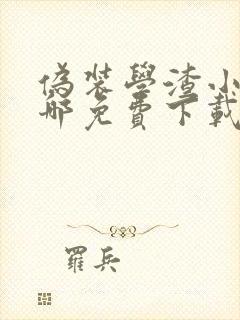 偽裝學渣小
哪免費下載
羅兵